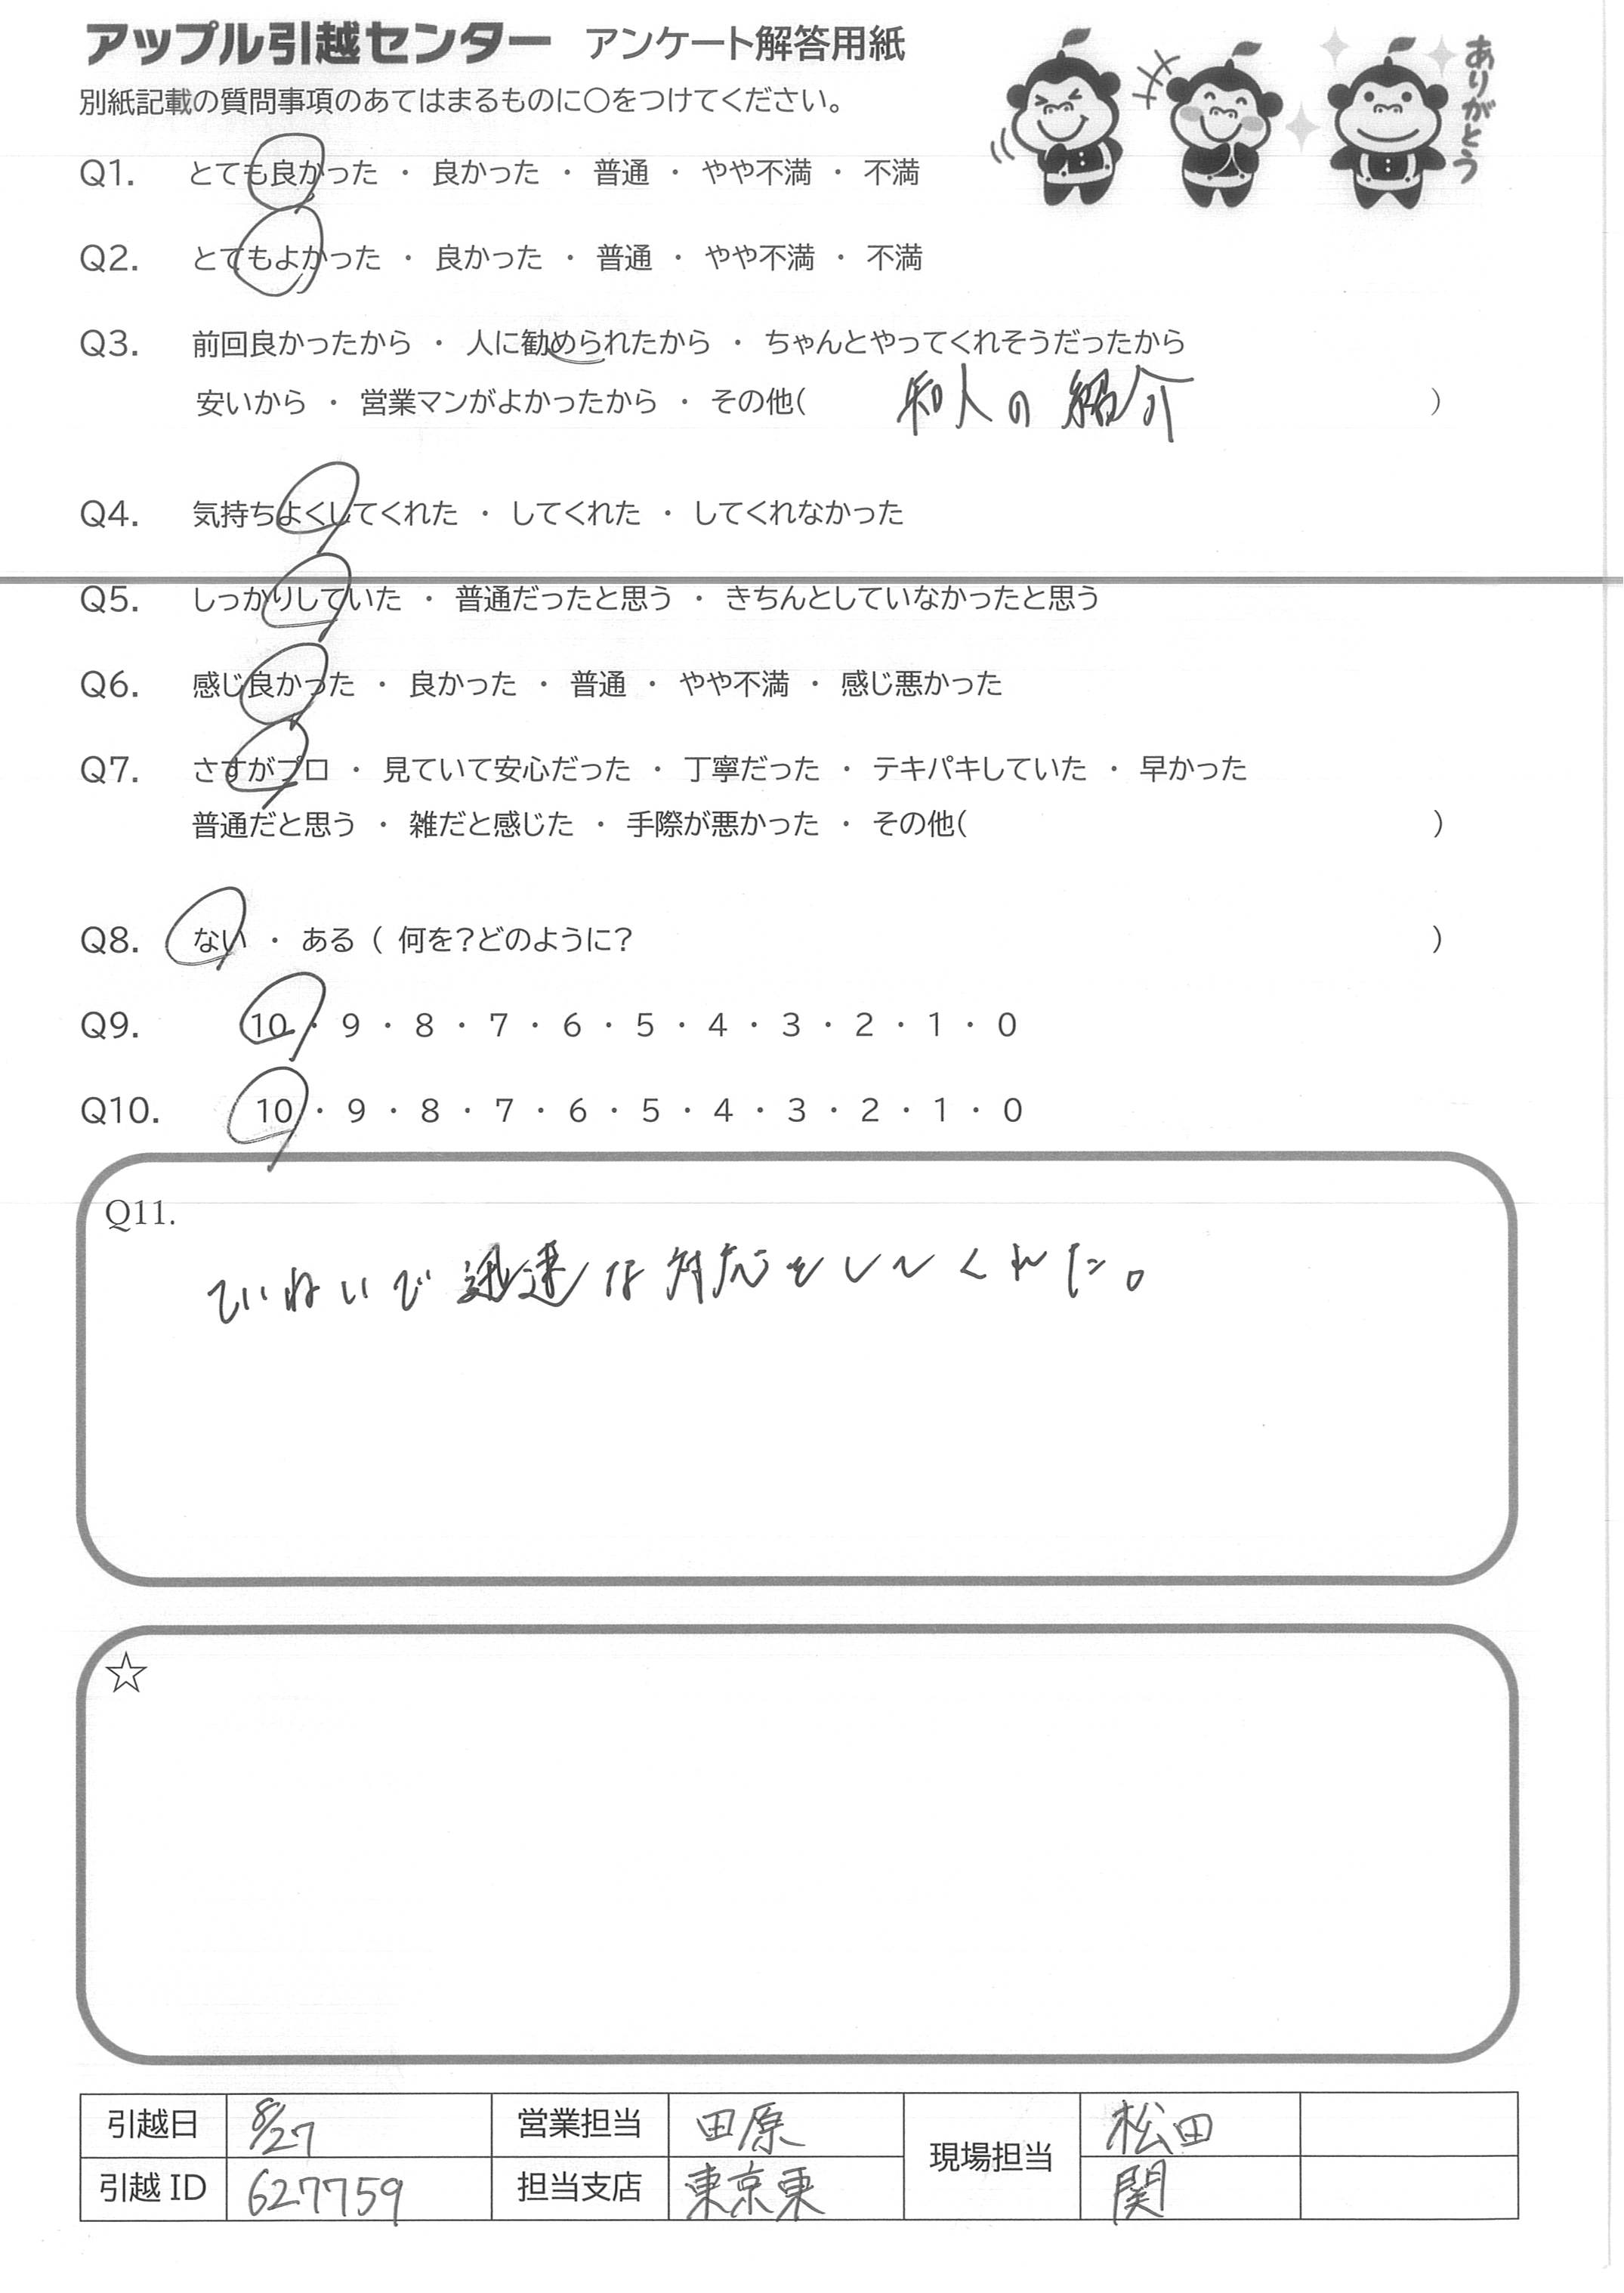 アップル引越センター アンケート解答用紙
別紙記載の質問事項のあてはまるものに○をつけてください。
ありがとう
Q1. とても良かった ・ 良かった ・ 普通 ・ やや不満 ・ 不満
Q2. とてもよかった ・ 良かった ・ 普通 ・ やや不満 ・ 不満
Q3. 前回良かったから ・ 人に勧められたから ・ ちゃんとやってくれそうだったから
安いから ・ 営業マンがよかったから ・ その他( 知人の紹介 )
Q4. 気持ちよくしてくれた ・ してくれた ・ してくれなかった
Q5. しっかりしていた ・ 普通だったと思う ・ きちんとしていなかったと思う
Q6. 感じ良かった ・ 良かった ・ 普通 ・ やや不満 ・ 感じ悪かった
Q7. さすがプロ ・ 見ていて安心だった ・ 丁寧だった ・ テキパキしていた ・ 早かった
普通だと思う ・ 雑だと感じた ・ 手際が悪かった ・ その他( )
Q8. ない ・ ある ( 何を?どのように? )
Q9. 10 ・ 9 ・ 8 ・ 7 ・ 6 ・ 5 ・ 4 ・ 3 ・ 2 ・ 1 ・ 0
Q10. 10 ・ 9 ・ 8 ・ 7 ・ 6 ・ 5 ・ 4 ・ 3 ・ 2 ・ 1 ・ 0
Q11.
ていねいで迅速な対応をしてくれた。
☆
引越日 8/27 営業担当 田原 現場担当 松田
引越 ID 627759 担当支店 東京東 関